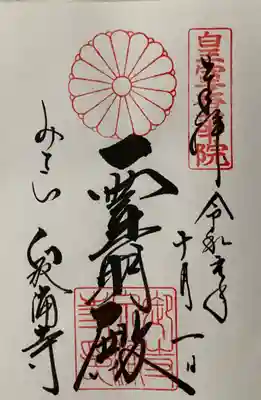 皇室香華院
奉拝 令和元年
十月一日
霊明殿
みてら
泉涌寺